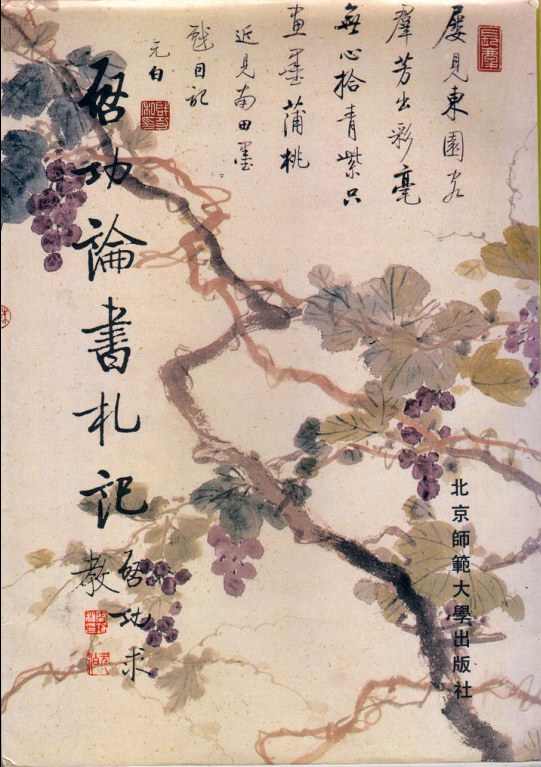 屢見東園
羣芳出彩毫
無心拾青紫只
畫墨蒲桃
近見南田墨
戲記
元白
啟功論書札記
啟功求
教
北京師範大學出版社